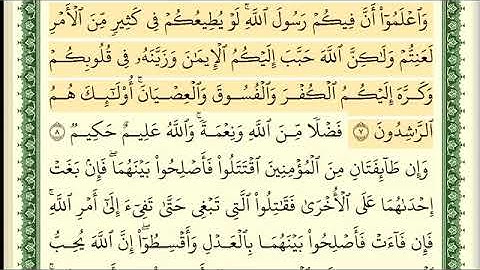 وَٱعْلَمُوٓا۟ أَنَّ فِيكُمْ رَسُولَ ٱللَّهِ ۚ لَوْ يُطِيعُكُمْ فِى كَثِيرٍ مِّنَ ٱلْأَمْرِ
لَعَنِتُّمْ وَلَٰكِنَّ ٱللَّهَ حَبَّبَ إِلَيْكُمُ ٱلْإِيمَٰنَ وَزَيَّنَهُۥ فِى قُلُوبِكُمْ
وَكَرَّهَ إِلَيْكُمُ ٱلْكُفْرَ وَٱلْفُسُوقَ وَٱلْعِصْيَانَ ۚ أُو۟لَٰٓئِكَ هُمُ
ٱلرَّٰشِدُونَ ٧ فَضْلًا مِّنَ ٱللَّهِ وَنِعْمَةً ۚ وَٱللَّهُ عَلِيمٌ حَكِيمٌ ٨
وَإِن طَآئِفَتَانِ مِنَ ٱلْمُؤْمِنِينَ ٱقْتَتَلُوا۟ فَأَصْلِحُوا۟ بَيْنَهُمَا ۖ فَإِنۢ بَغَتْ
إِحْدَىٰهُمَا عَلَى ٱلْأُخْرَىٰ فَقَٰتِلُوا۟ ٱلَّتِى تَبْغِى حَتَّىٰ تَفِىٓءَ إِلَىٰٓ أَمْرِ ٱللَّهِ ۚ
فَإِن فَآءَتْ فَأَصْلِحُوا۟ بَيْنَهُمَا بِٱلْعَدْلِ وَأَقْسِطُوٓا۟ ۖ إِنَّ ٱللَّهَ يُحِبُّ